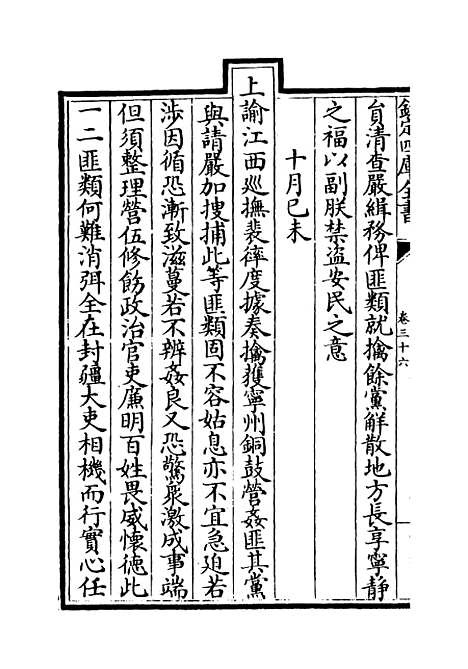 欽定四庫全書
卷三十六
員清查嚴緝務俾匪類就擒餘黨解散地方長享寧靜
之福以副朕禁盜安民之意
十月己未
上諭江西巡撫裴𢕑度據奏擒獲寧州銅鼓營姦匪其黨
與請嚴加搜捕此等匪類固不容姑息亦不宜急迫若
涉因循恐漸致滋蔓若不辨姦良又恐驚衆激成事端
但須整理營伍修飭政治官吏廉明百姓畏威懷德此
一二匪類何難消弭全在封疆大吏相機而行實心任